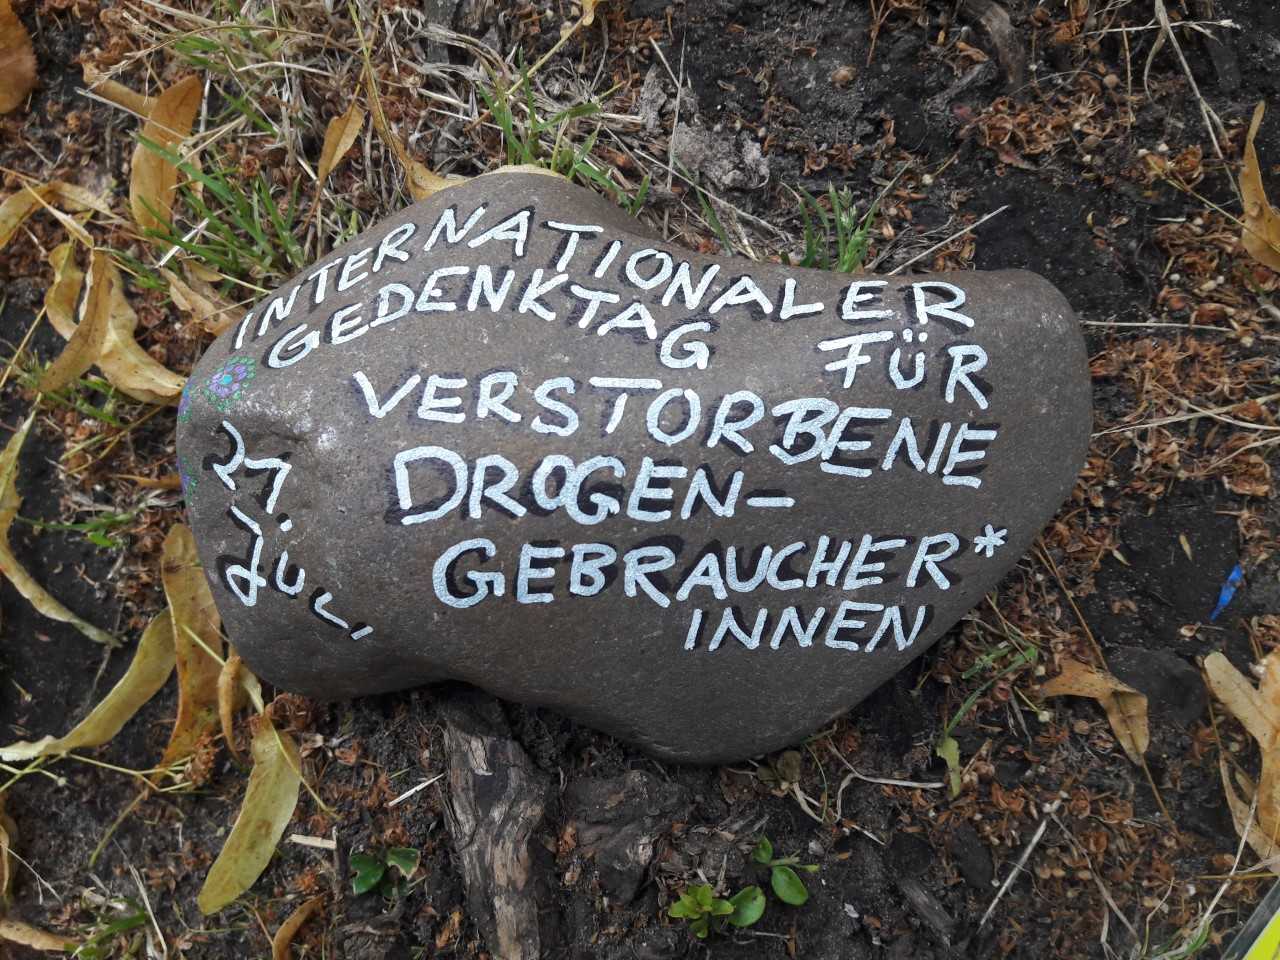 INTERNATIONALER
GEDENKTAG FÜR
VERSTORBENE
DROGEN-
GEBRAUCHER*
INNEN
21.
JULI